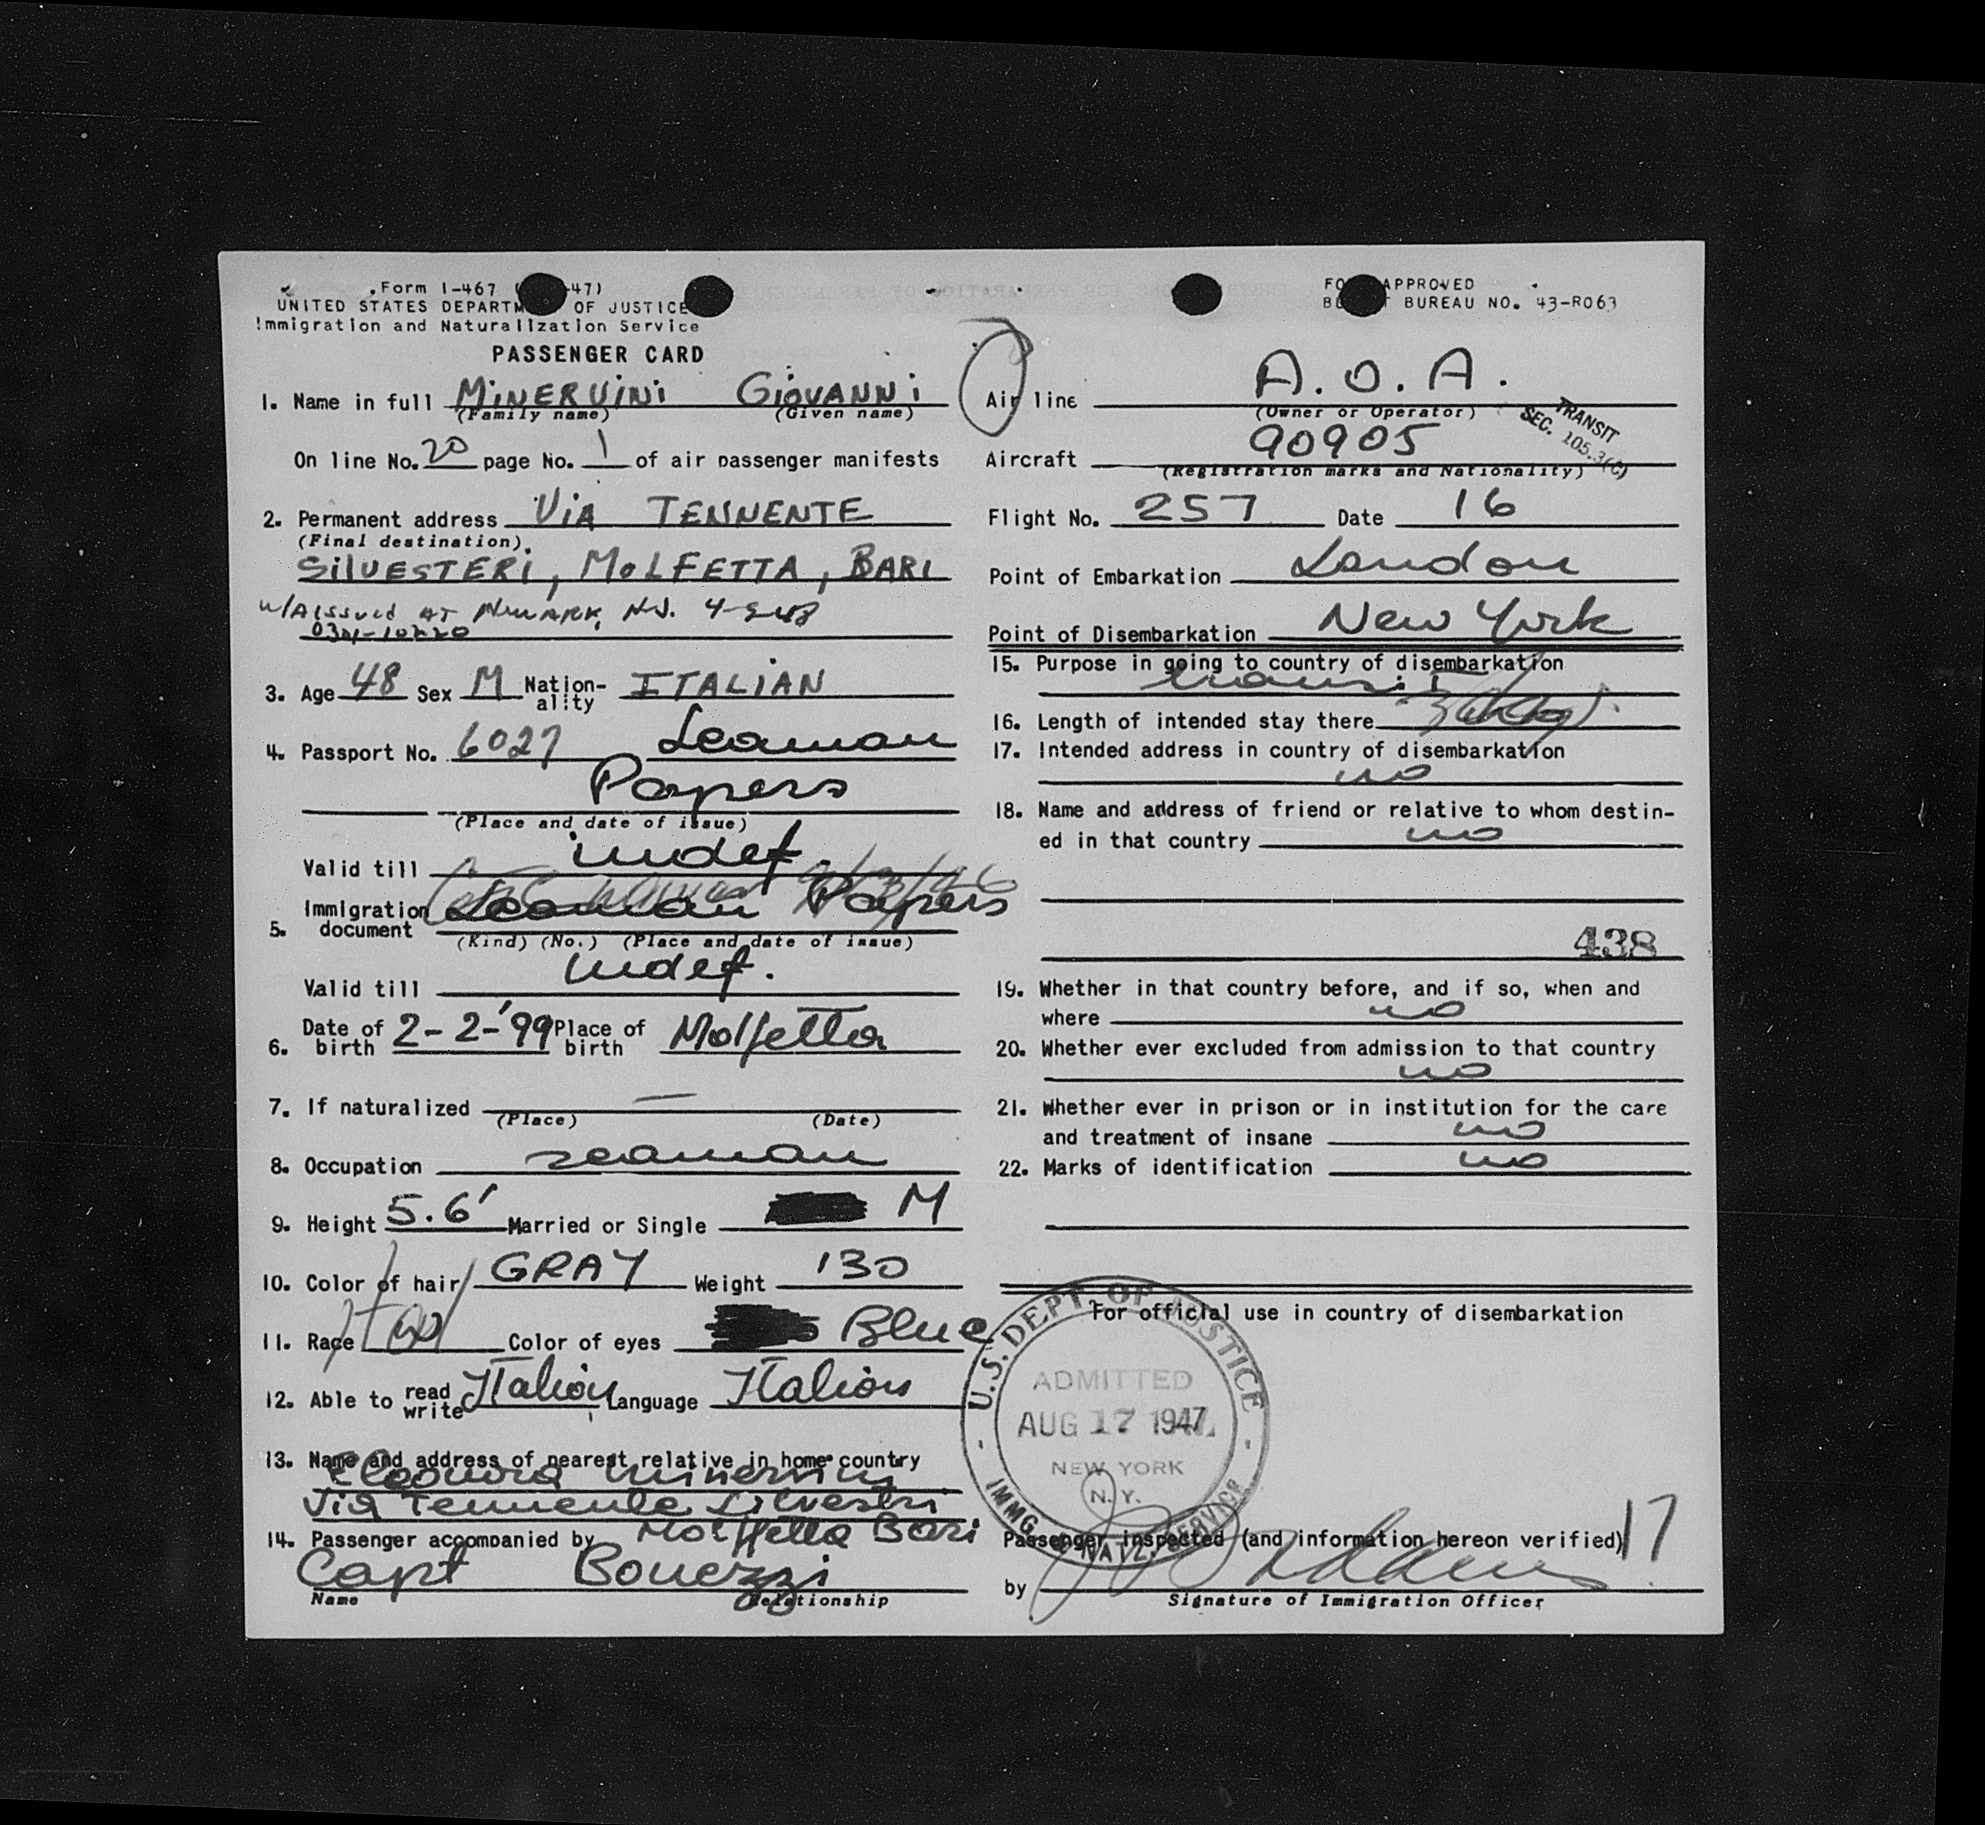 Form I-467 ( -47)
UNITED STATES DEPARTM OF JUSTICE
Immigration and Naturalization Service
PASSENGER CARD
1. Name in full MiNERViNi GiOVANNi
(Family name) (Given name)
On line No. 20 page No. 1 of air passenger manifests
2. Permanent address ViA TENNENTE
(Final destination)
SilVESTERi, MOLFETTA, BARI
W/A issued AT Newark, N.J. 4-9-48
3. Age 48 Sex M Nation-ality ITALIAN
4. Passport No. 6027 Seaman
Papers
(Place and date of issue)
Valid till indef.
5. Immigration document Seaman Papers
(Kind) (No.) (Place and date of issue)
Valid till indef.
6. Date of birth 2-2-'99 Place of birth Molfetta
7. If naturalized —
(Place) (Date)
8. Occupation seaman
9. Height 5.6' Married or Single M
10. Color of hair GRAY Weight 130
11. Race Color of eyes Blue
12. Able to read write Italian Language Italian
13. Name and address of nearest relative in home country
Eleonora Minervini
Via Tennente Silvestri
14. Passenger accompanied by Molffetta Bari
Capt Bouezzi
Name Relationship
FO APPROVED
B T BUREAU NO. 43-R063
Air line A.O.A.
(Owner or Operator)
TRANSIT
SEC. 105.3(C)
Aircraft 90905
(Registration marks and Nationality)
Flight No. 257 Date 16
Point of Embarkation London
Point of Disembarkation New York
15. Purpose in going to country of disembarkation
transit
16. Length of intended stay there
17. Intended address in country of disembarkation
no
18. Name and address of friend or relative to whom destin-
ed in that country no
438
19. Whether in that country before, and if so, when and
where no
20. Whether ever excluded from admission to that country
no
21. Whether ever in prison or in institution for the care
and treatment of insane no
22. Marks of identification no
For official use in country of disembarkation
U.S. DEPT. OF JUSTICE
ADMITTED
AUG 17 1947
NEW YORK
N.Y.
IMMG. & NATZ. SERVICE
Passenger inspected (and information hereon verified) 17
by
Signature of Immigration Officer